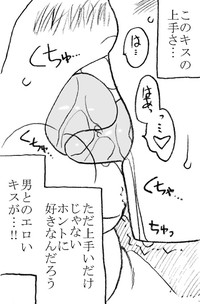 このキスの
上手さ…
は…
はぁ
っ…
…♡
くちゅ…
くちゅ
くちゅ…
ただ上手いだけ
じゃない
ホントに
好きなんだろう
男とのエロい
キスが…!!